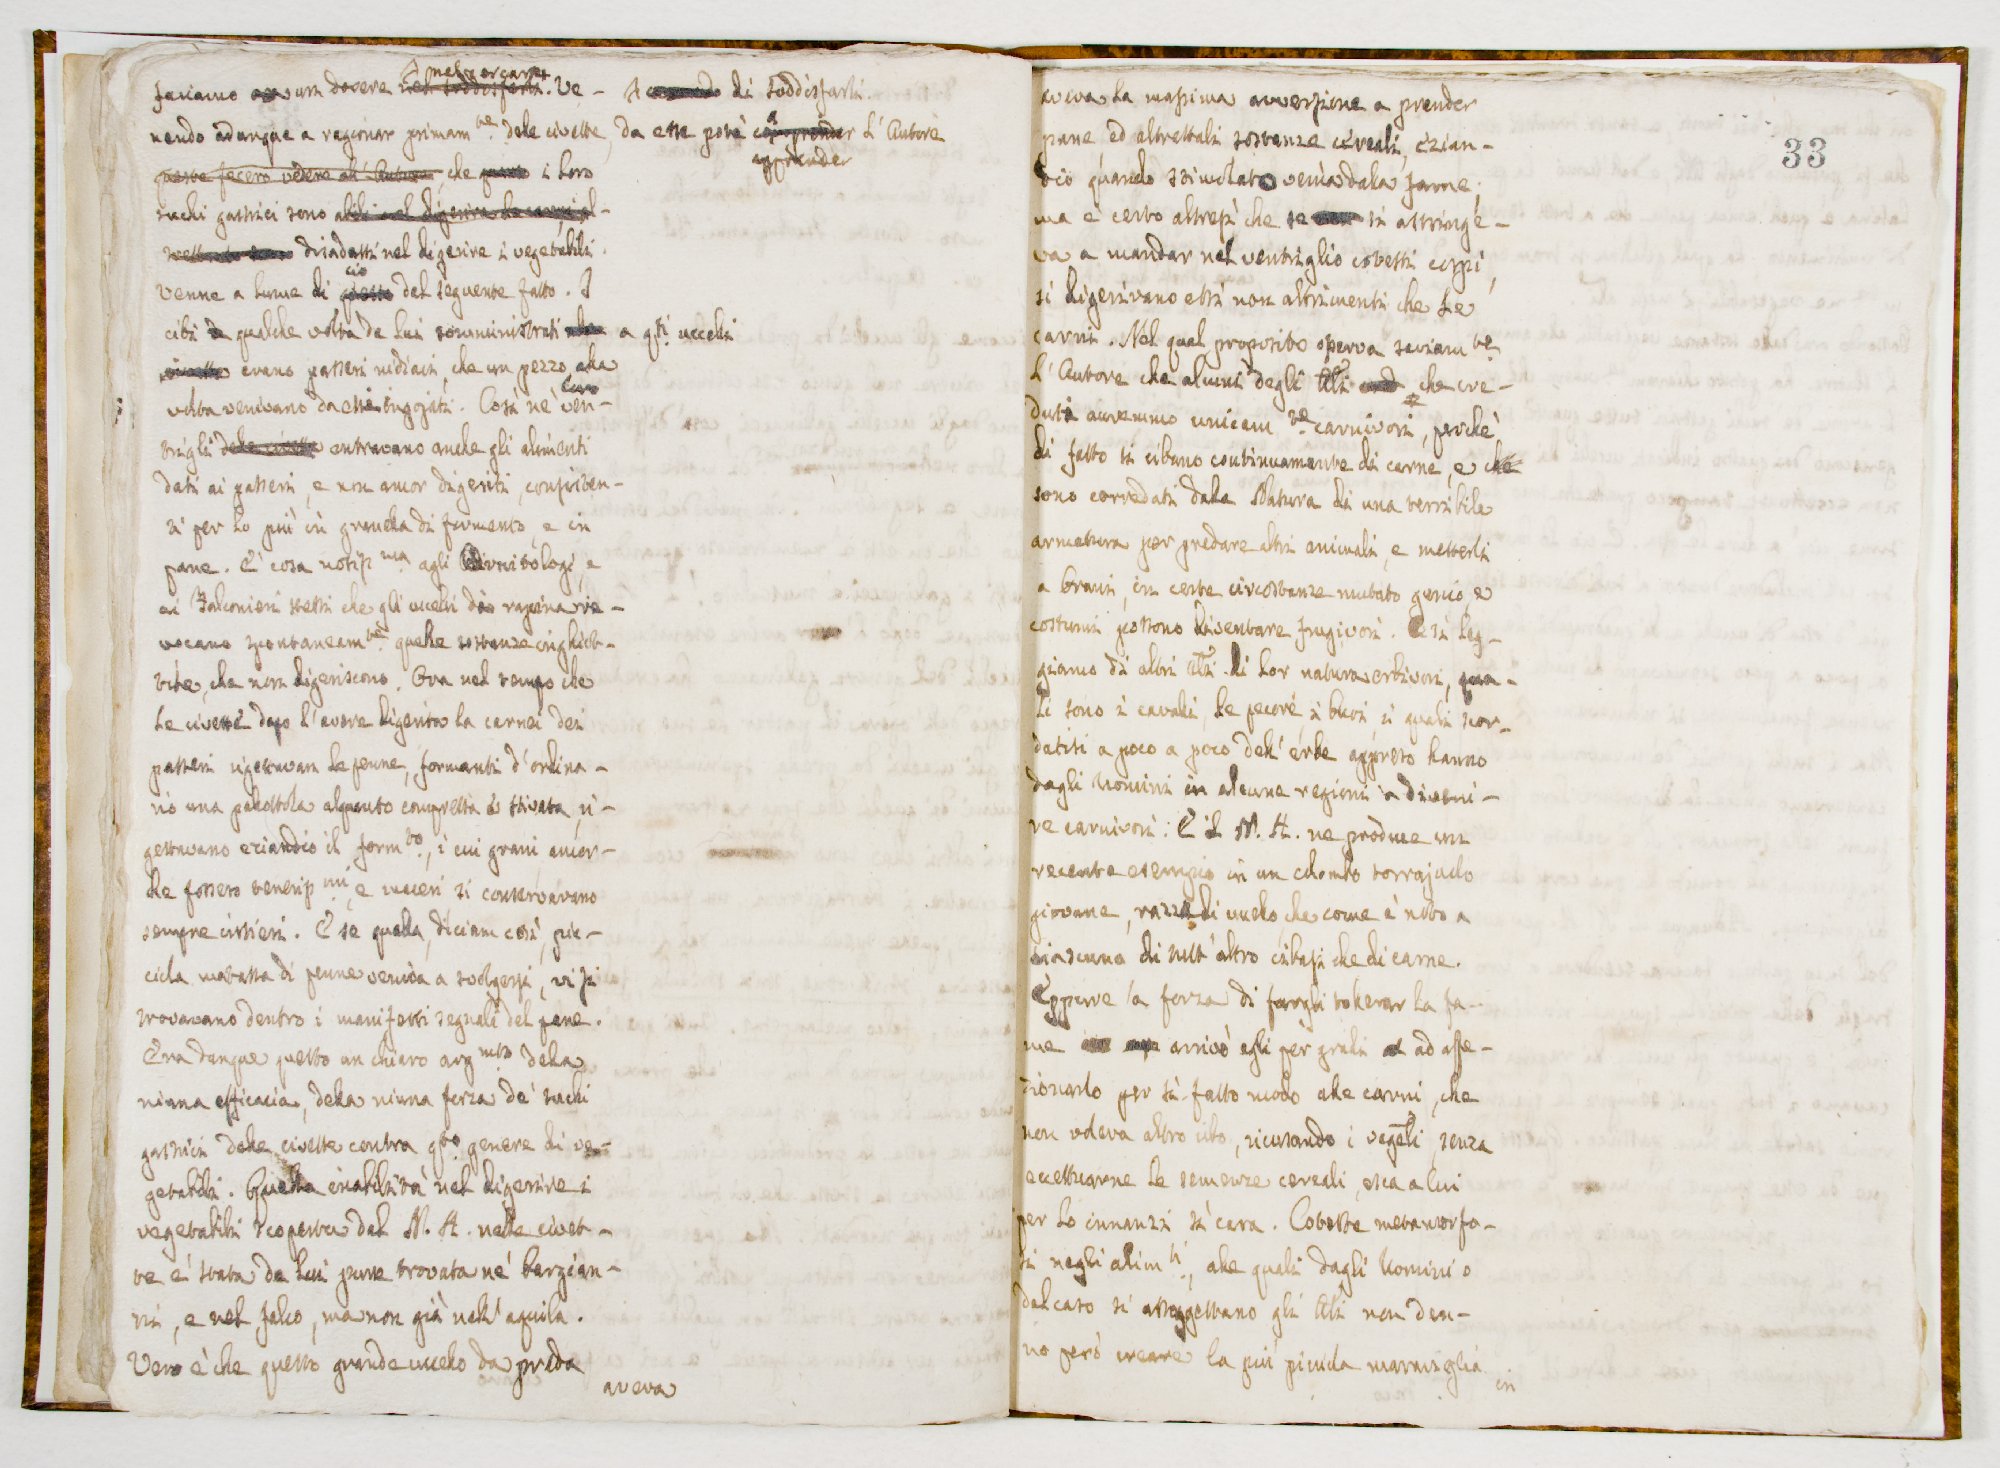 facciamo un dovere nel soddisfarli. Ve-
nendo adunque a ragionar primam.te delle civette, da esse potè apprender l'Autore
di soddisfarli.
queste fecero vedere all'Autore, che i loro
suchi gastrici sono
disadatti nel digerire i vegetabili.
Venne a lume di ciò dal seguente fatto. I
cibi qualche volta da lui somministrati a q.sti uccelli
erano passeri nidiaci, che un pezzo alla
volta venivano da esse ingojati. Così ne' loro ven-
trigli delle civette entravano anche gli alimenti
dati ai passeri, e non ancor digeriti, consisten-
ti per lo più in granella di formento, e in
pane. È cosa notiss.ma agli Ornitologi, e
ai Falconieri stessi che gli uccelli di rapina re-
vocano spontaneam.te quelle sostanze inghiot-
tite, che non digeriscono. Ora nel tempo che
le civette dopo l'avere digerita la carne dei
passeri rigettavan le penne, formanti d'ordina-
rio una pallottola alquanto compressa e stivata, ri-
gettavano eziandio il form.to, i cui grani ancor-
chè fossero teneriss.mi, e maceri si conservavano
sempre intieri. E se quella, diciam così, pic-
ciola matassa di penne veniva a svolgersi, vi si
trovavano dentro i manifesti segnali del pane.
Era dunque questo un chiaro arg.mto della
niuna efficacia, della niuna forza de' suchi
gastrici delle civette contra q.sto genere di ve-
getabili. Questa inabilità nel digerire i
vegetabili scoperta dal N. A. nelle civet-
te è stata da lui pure trovata ne' bargian-
ni, e nel falco, ma non già nell'aquila.
Vero è che questo grande uccello da preda
aveva
33
aveva la massima avversione a prender
pane ed altrettali sostanze cereali, ezian-
dio quando stimolato venia dalla fame.
ma è certo altresì che se si astringe-
va a mandar nel ventriglio cotesti corpi,
si digerivano essi non altrimenti che le
carni. Nel qual proposito osserva saviam.te
l'Autore che alcuni degli Ali che cre-
duti avremmo unicam.te carnivori, perchè
di fatto si cibano continuamente di carne, e che
sono corredati dalla Natura di una terribile
armatura per predare altri animali, e metterli
a brani, in certe circostanze mutato genio, e
costumi possono diventare frugivori. E si leg-
giamo di altri Ali di lor natura erbivori, qua-
li sono i cavalli, le pecore, i buoi, i quali scor-
datisi a poco a poco dell'erbe appreso hanno
dagli Uomini in alcune regioni a diveni-
re carnivori: E il N. A. ne produce un
recente esempio in un colombo torrajuolo
giovane, razza di uccello che come è noto a
ciascuno di tutt'altro cibasi che di carne.
Eppure a forza di fargli tollerar la fa-
me arrivò egli per gradi ad affe-
zionarlo per sì fatto modo alle carni, che
non voleva altro cibo, ricusando i vegeli, senza
eccettuarne le semenze cereali, esca a lui
per lo innanzi sì cara. Coteste metamorfo-
si negli alim.ti, alle quali dagli Uomini o
dal caso si assoggettano gli Ali non den-
no però creare la più picciola maraviglia
in